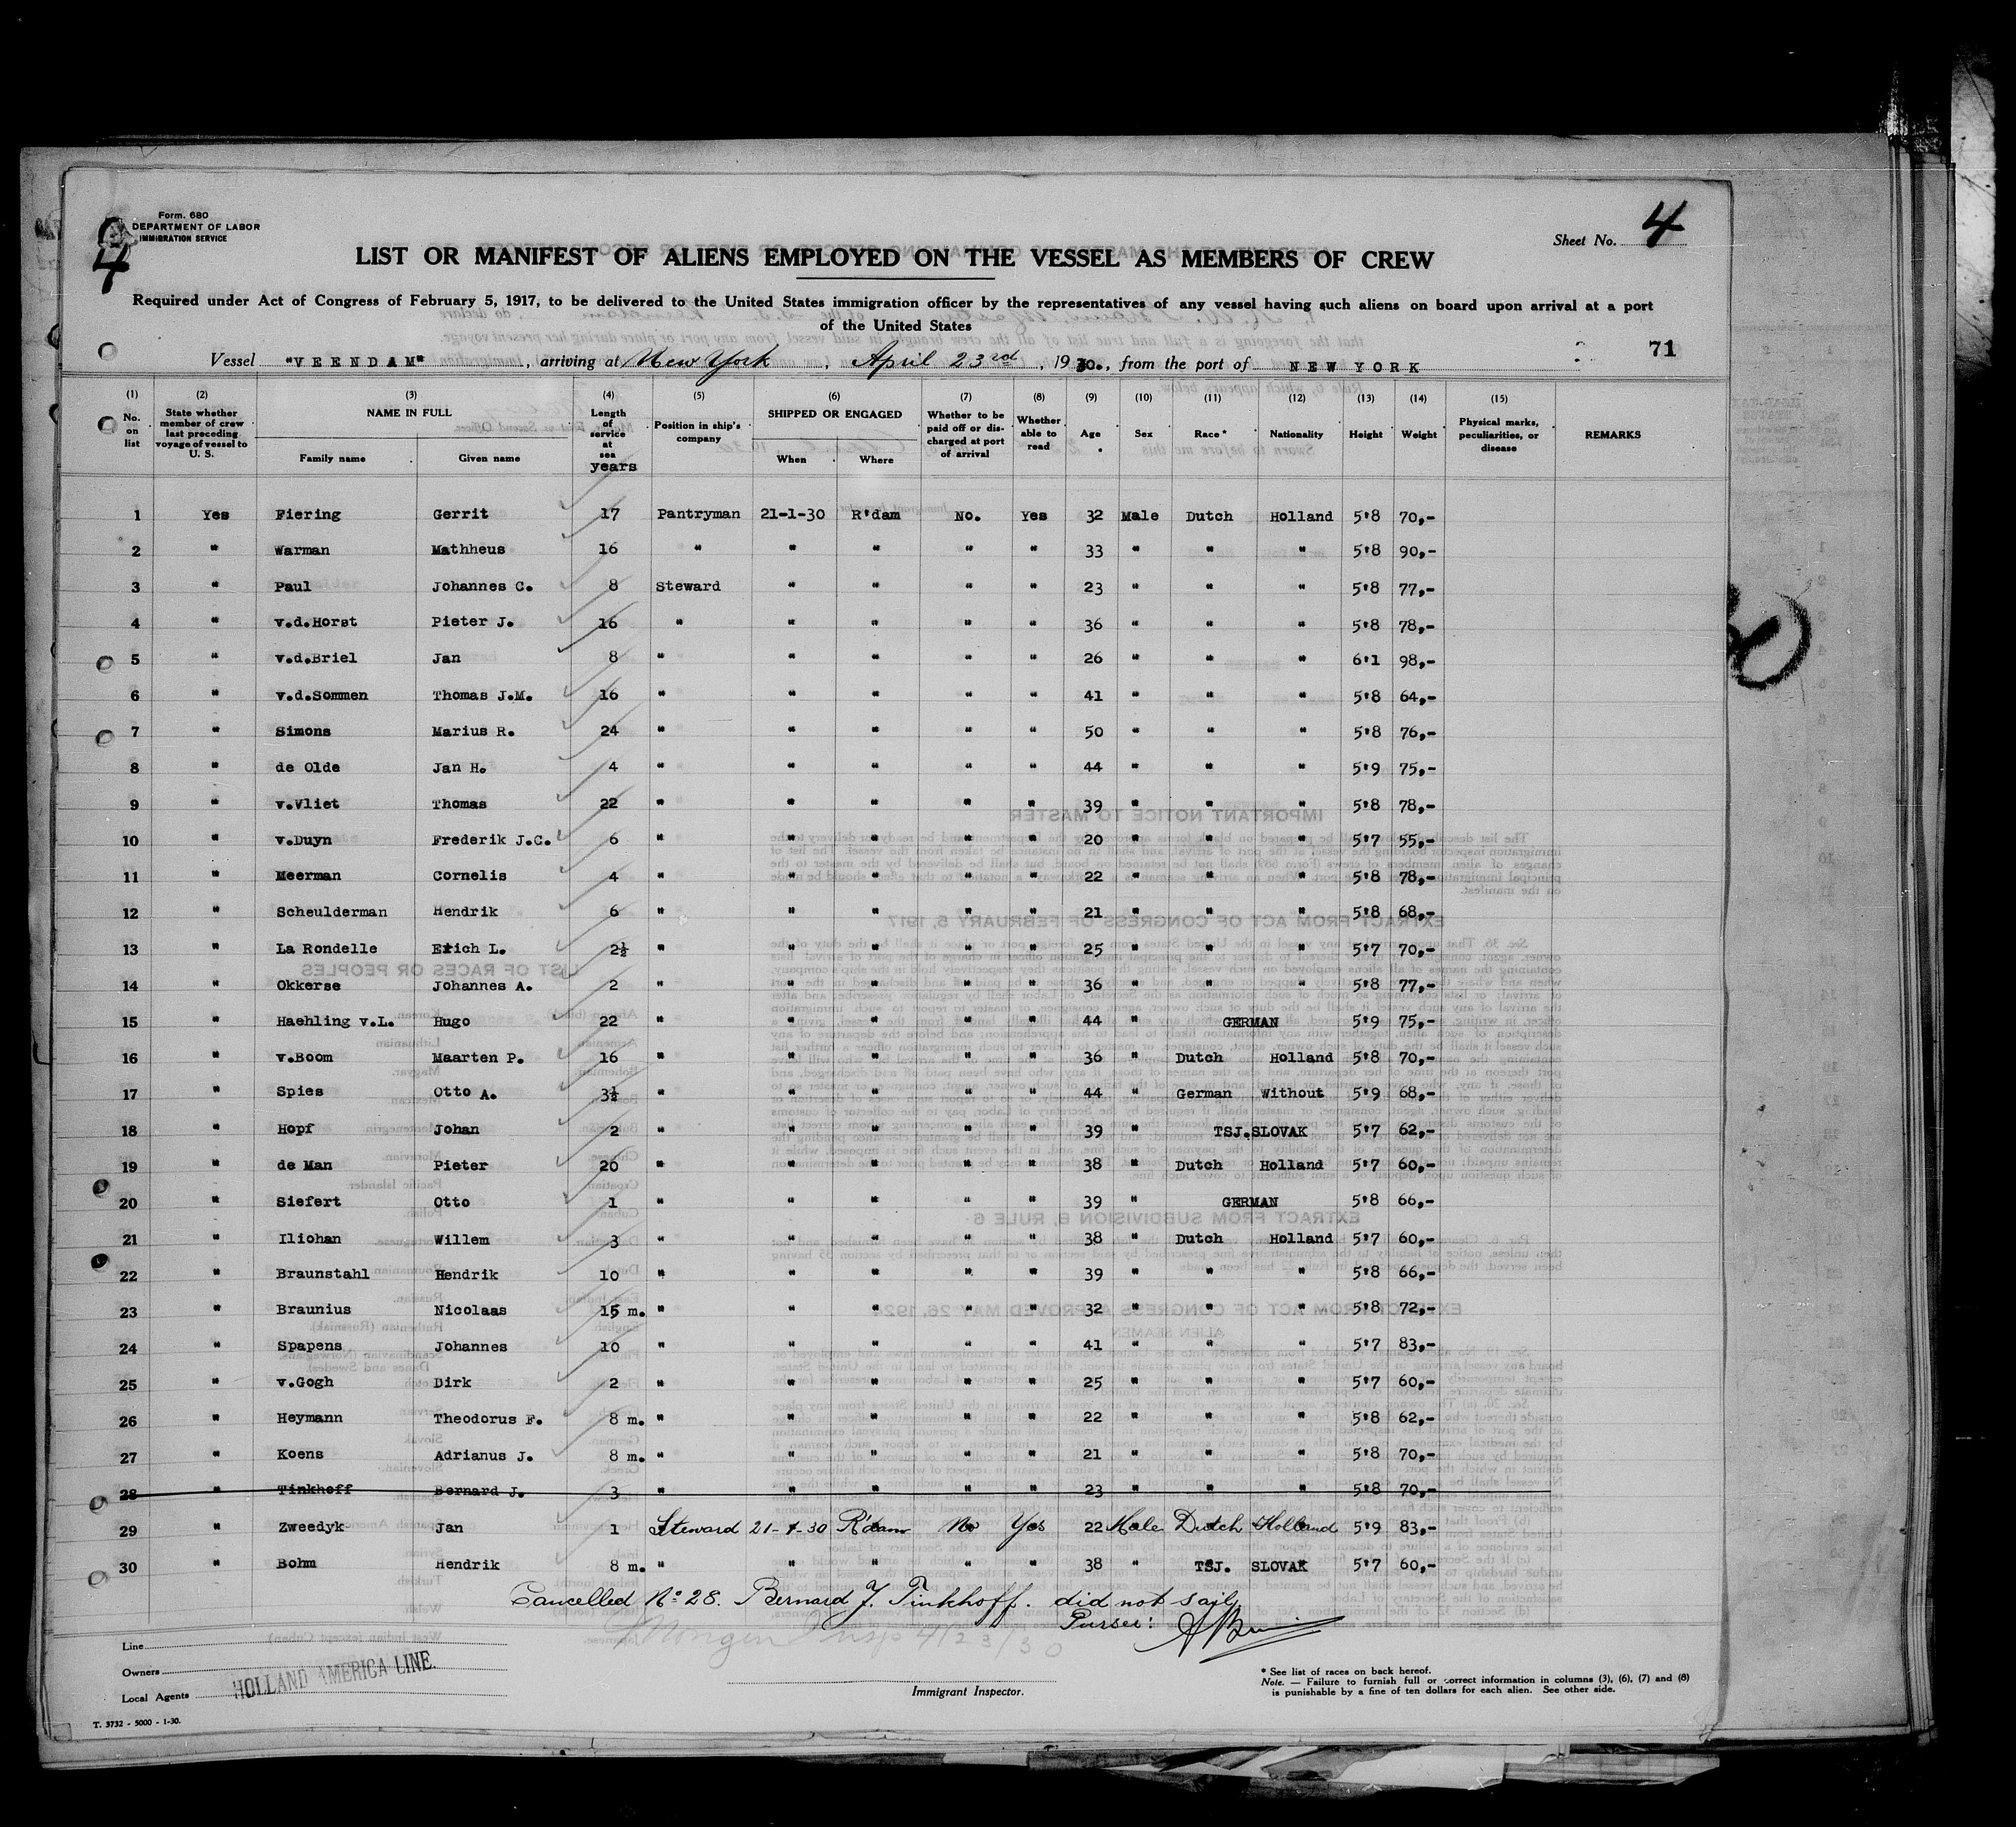 Form. 680
DEPARTMENT OF LABOR
IMMIGRATION SERVICE
4
Sheet No. 4
LIST OR MANIFEST OF ALIENS EMPLOYED ON THE VESSEL AS MEMBERS OF CREW
Required under Act of Congress of February 5, 1917, to be delivered to the United States immigration officer by the representatives of any vessel having such aliens on board upon arrival at a port
of the United States
71
Vessel "VEENDAM", arriving at New York, April 23rd, 1930., from the port of NEW YORK
(1) No. on list
(2) State whether member of crew last preceding voyage of vessel to U. S.
(3) NAME IN FULL Family name Given name
(4) Length of service at sea years
(5) Position in ship's company
(6) SHIPPED OR ENGAGED When Where
(7) Whether to be paid off or discharged at port of arrival
(8) Whether able to read
(9) Age
(10) Sex
(11) Race*
(12) Nationality
(13) Height
(14) Weight
(15) Physical marks, peculiarities, or disease
REMARKS
1 Yes Fiering Gerrit 17 Pantryman 21-1-30 R'dam No. Yes 32 Male Dutch Holland 5'8 70,-
2 " Warman Mathheus 16 " " " " " 33 " " " 5'8 90,-
3 " Paul Johannes C. 8 Steward " " " " 23 " " " 5'8 77,-
4 " v.d.Horst Pieter J. 16 " " " " " 36 " " " 5'8 78,-
5 " v.d.Briel Jan 8 " " " " " 26 " " " 6'1 98,-
6 " v.d.Sommen Thomas J.M. 16 " " " " " 41 " " " 5'8 64,-
7 " Simons Marius R. 24 " " " " " 50 " " " 5'8 76,-
8 " de Olde Jan H. 4 " " " " " 44 " " " 5'9 75,-
9 " v.Vliet Thomas 22 " " " " " 39 " " " 5'8 78,-
10 " v.Duyn Frederik J.C. 6 " " " " " 20 " " " 5'7 55,-
11 " Meerman Cornelis 4 " " " " " 22 " " " 5'8 78,-
12 " Scheulderman Hendrik 6 " " " " " 21 " " " 5'8 68,-
13 " La Rondelle Erich L. 2½ " " " " " 25 " " " 5'7 70,-
14 " Okkerse Johannes A. 2 " " " " " 36 " " " 5'8 77,-
15 " Haehling v.L. Hugo 22 " " " " " 44 " GERMAN 5'9 75,-
16 " v.Boom Maarten P. 16 " " " " " 36 " Dutch Holland 5'8 70,-
17 " Spies Otto A. 3½ " " " " " 44 " German Without 5'9 68,-
18 " Hopf Johan 2 " " " " " 39 " TSJ.SLOVAK 5'7 62,-
19 " de Man Pieter 20 " " " " " 38 " Dutch Holland 5'7 60,-
20 " Siefert Otto 1 " " " " " 39 " GERMAN 5'8 66,-
21 " Iliohan Willem 3 " " " " " 38 " Dutch Holland 5'7 60,-
22 " Braunstahl Hendrik 10 " " " " " 39 " " " 5'8 66,-
23 " Braunius Nicolaas 15 m. " " " " " 32 " " " 5'8 72,-
24 " Spapens Johannes 10 " " " " " 41 " " " 5'7 83,-
25 " v.Gogh Dirk 2 " " " " " 25 " " " 5'7 60,-
26 " Heymann Theodorus F. 8 m. " " " " " 22 " " " 5'8 62,-
27 " Koens Adrianus J. 8 m. " " " " " 21 " " " 5'8 70,-
28 " Tinkhoff Bernard J. 3 " " " " " 23 " " " 5'8 70,-
29 " Zweedyk Jan 1 Steward 21-1-30 R'dam No Yes 22 Male Dutch Holland 5'9 83,-
30 " Bohm Hendrik 8 m. " " " " " 38 " TSJ. SLOVAK 5'7 60,-
Cancelled No. 28. Bernard J. Tinkhoff. did not sail
Purser:
Insp 4/23/30
Line
Owners
HOLLAND AMERICA LINE.
Local Agents
Immigrant Inspector.
* See list of races on back hereof.
Note. — Failure to furnish full or correct information in columns (3), (6), (7) and (8)
is punishable by a fine of ten dollars for each alien. See other side.
T. 3732 - 5000 - 1-30.